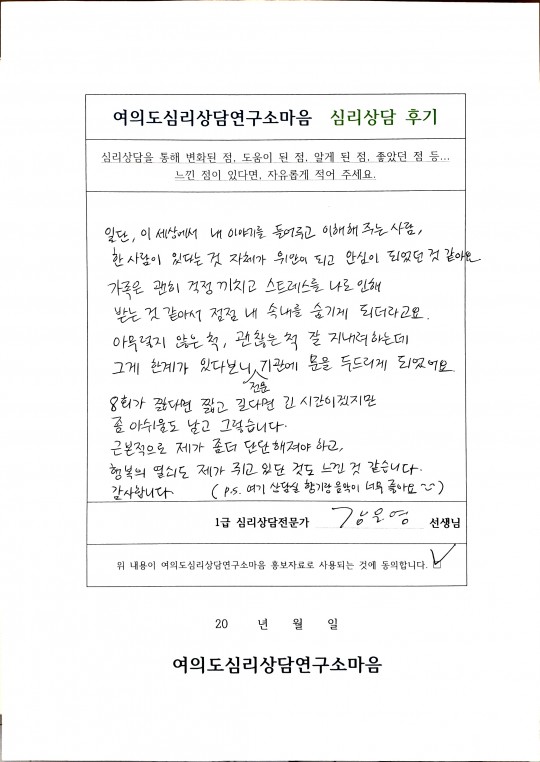 여의도심리상담연구소마음 심리상담 후기
심리상담을 통해 변화된 점, 도움이 된 점, 알게 된 점, 좋았던 점 등...
느낀 점이 있다면, 자유롭게 적어 주세요.
일단, 이 세상에서 내 이야기를 들어주고 이해해 주는 사람,
한 사람이 있다는 것 자체가 위안이 되고 안심이 되었던 것 같아요
가족은 괜히 걱정 끼치고 스트레스를 나로 인해
받는 것 같아서 점점 내 속내를 숨기게 되더라고요.
아무렇지 않은 척, 괜찮은 척 잘 지내려 하는데
그게 한계가 있다보니 전문 기관에 문을 두드리게 되었어요
8회가 짧다면 짧고 길다면 긴 시간이겠지만
좀 아쉬움도 남고 그렇습니다.
근본적으로 제가 좀더 단단해져야 하고,
행복의 열쇠도 제가 쥐고 있단 것도 느낀 것 같습니다.
감사합니다. (p.s. 여기 상담실 향기랑 음악이 너무 좋아요~~)
1급 심리상담전문가 강모영 선생님
위 내용이 여의도심리상담연구소마음 홍보자료로 사용되는 것에 동의합니다. ☑
20 년 월 일
여의도심리상담연구소마음